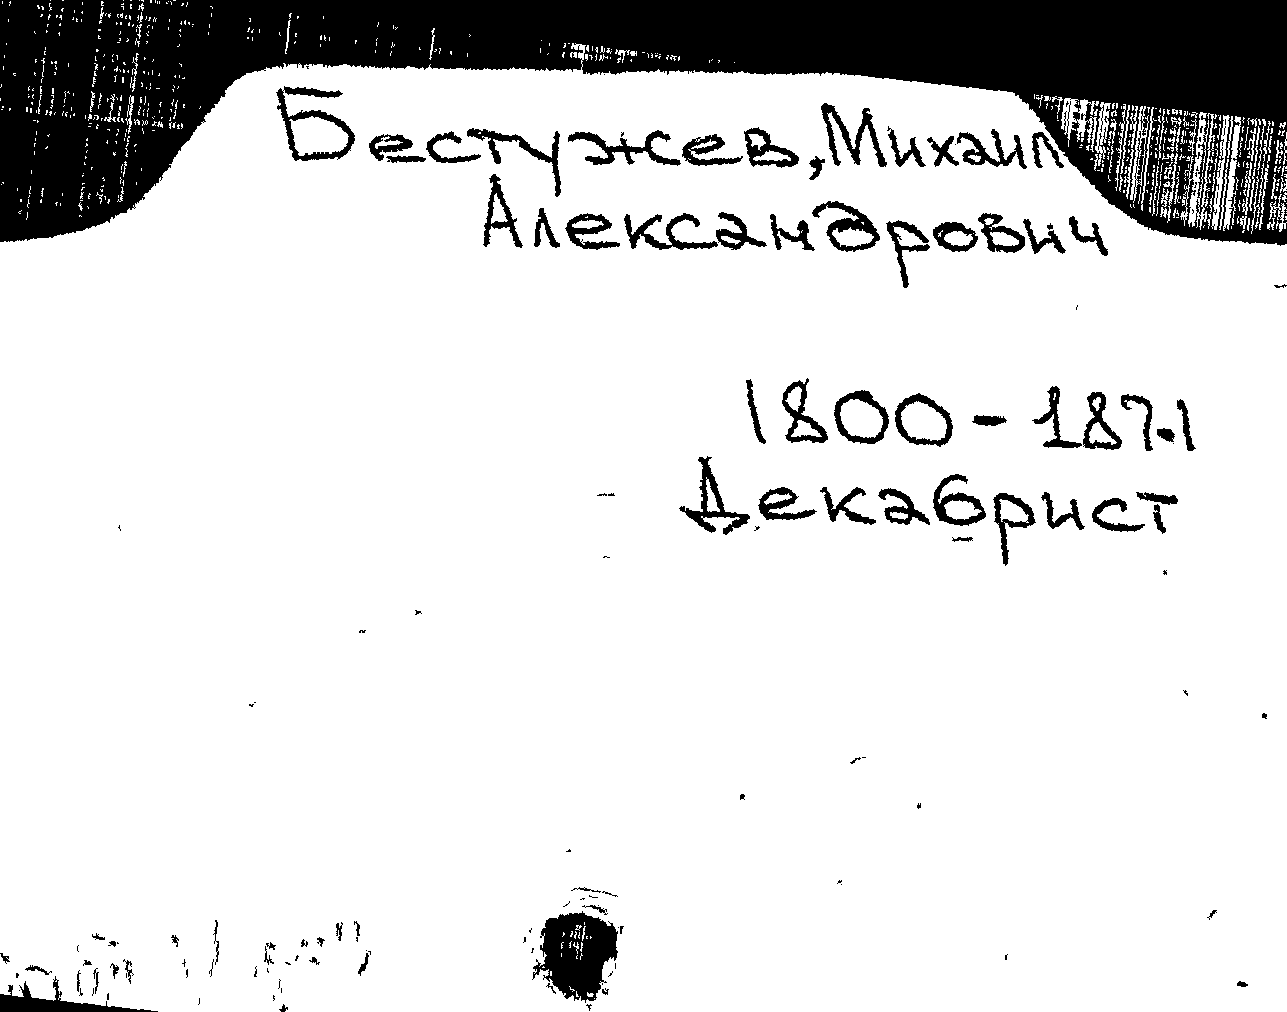 Бестужев, Михаил
Александрович
1800-1871
Декабрист